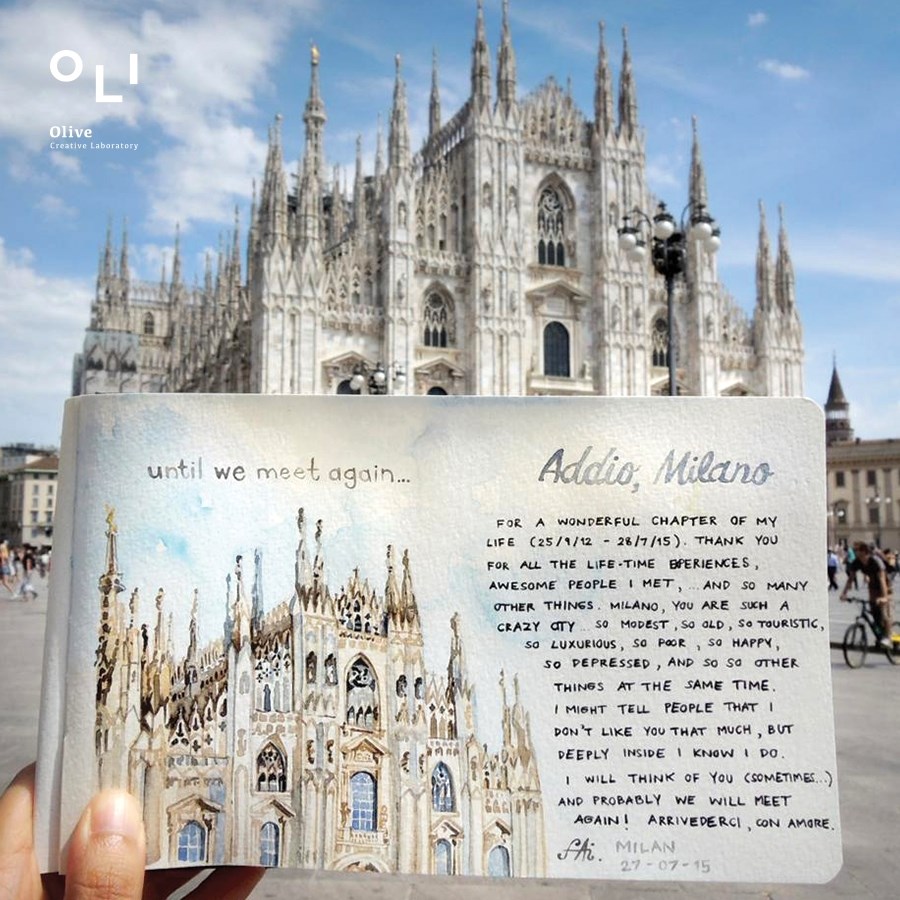 OLI
Olive
Creative Laboratory
until we meet again...
Addio, Milano
FOR A WONDERFUL CHAPTER OF MY
LIFE (25/9/12 - 28/7/15). THANK YOU
FOR ALL THE LIFE-TIME EPERIENCES,
AWESOME PEOPLE I MET, ...AND SO MANY
OTHER THINGS. MILANO, YOU ARE SUCH A
CRAZY CITY.. SO MODEST, SO OLD, SO TOURISTIC,
SO LUXURIOUS, SO POOR, SO HAPPY,
SO DEPRESSED, AND SO SO OTHER
THINGS AT THE SAME TIME.
I MIGHT TELL PEOPLE THAT I
DON'T LIKE YOU THAT MUCH, BUT
DEEPLY INSIDE I KNOW I DO.
I WILL THINK OF YOU (SOMETIMES...)
AND PROBABLY WE WILL MEET
AGAIN! ARRIVEDERCI, CON AMORE.
MILAN
27-07-15